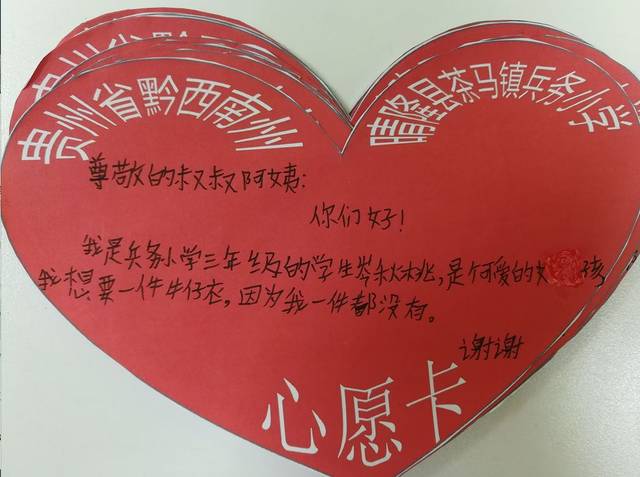 贵州省黔西南州
晴隆县茶马镇兵务小学
尊敬的叔叔阿姨:
你们好!
我是兵务小学三年级的学生岑秋桃,是个可爱的女孩
我想要一件牛仔衣,因为我一件都没有。
谢谢
心愿卡